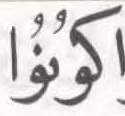 اكُونُوْا